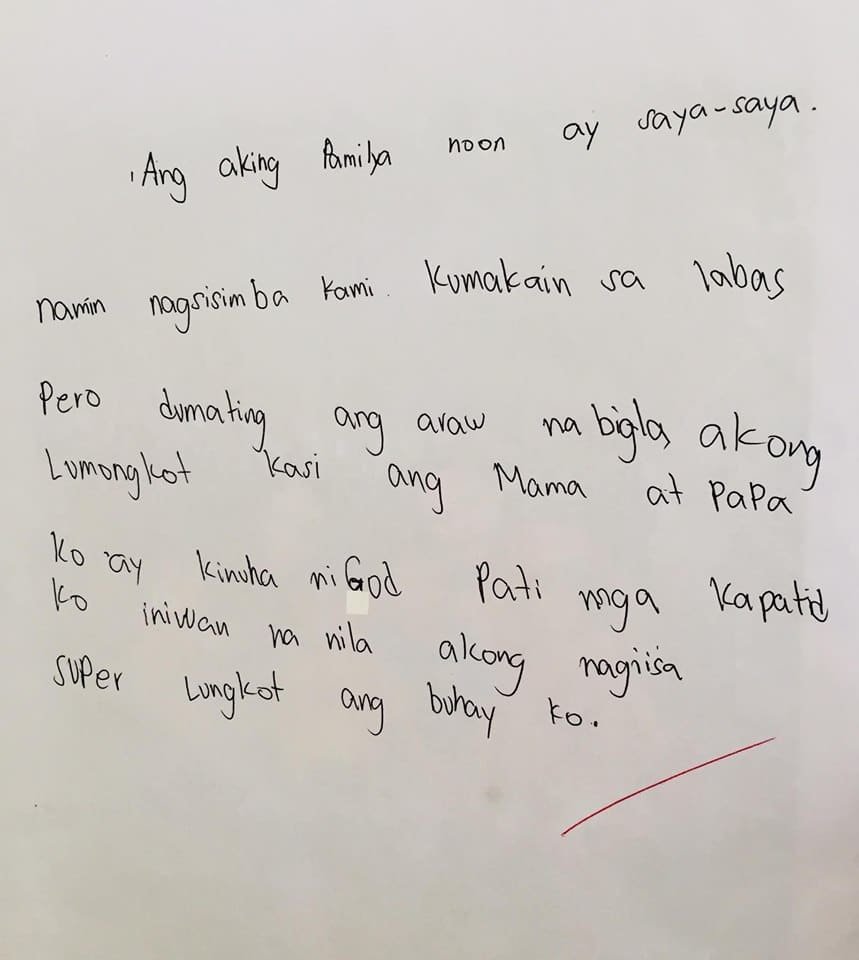 Ang aking Pamilya noon ay saya-saya.
namin nagsisimba kami. Kumakain sa labas
Pero dumating ang araw na bigla akong
Lumongkot kasi ang Mama at PaPa
ko ay kinuha ni God Pati mga kapatid
ko iniwan na nila akong nagiisa
super Lungkot ang buhay ko.